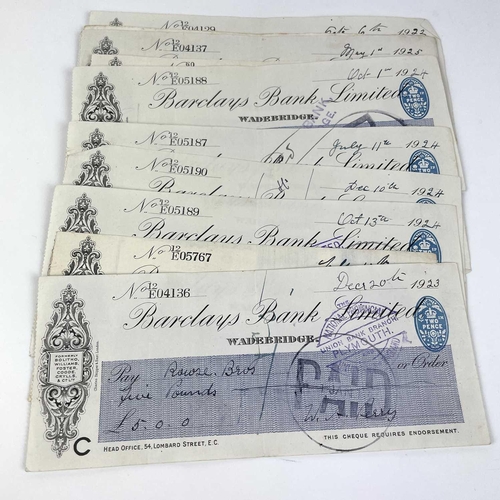 No 12/E04129 6th 1922
No 12/E04137 May 1st 1925
No 12/E05188 Oct 1st 1924
Barclays Bank Limited
WADEBRIDGE.
TWO PENCE
No 12/E05187 July 11th 1924
Barclays Bank Limited
No 12/E05190 Dec 10th 1924
Barclays Limited
No 12/E05189 Oct 13th 1924
Barclays Bank Limited
No 12/E05767
No 12/E04136 Dec 20th 1923
Barclays Bank Limited
WADEBRIDGE.
TWO PENCE
UNION BANK BRANCH
PLYMOUTH.
PAID
FORMERLY
BOLITHO,
WILLIAMS,
FOSTER,
COODE,
GRYLLS
& CO LTD
Pay Rowse Bros or Order
five Pounds
£5.0.0
C
HEAD OFFICE, 54, LOMBARD STREET, E.C.
THIS CHEQUE REQUIRES ENDORSEMENT.